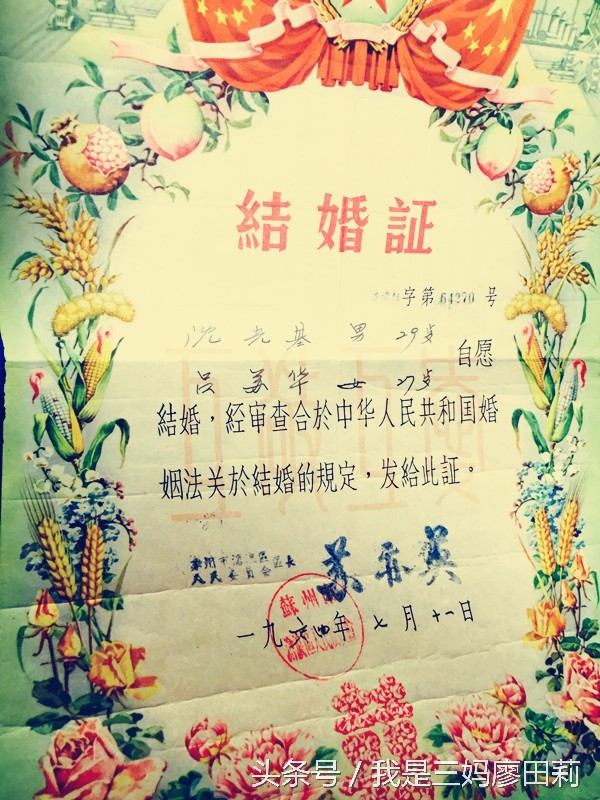 結婚証
字第64270号
沈光基 男 29岁
自愿
吕美华 女 27岁
結婚，經审查合於中华人民共和国婚
姻法关於結婚的規定，发給此証。
苏州市沧浪区
人民委員会区长
苏州
一九六四年七月十一日
头条号 / 我是三妈廖田莉